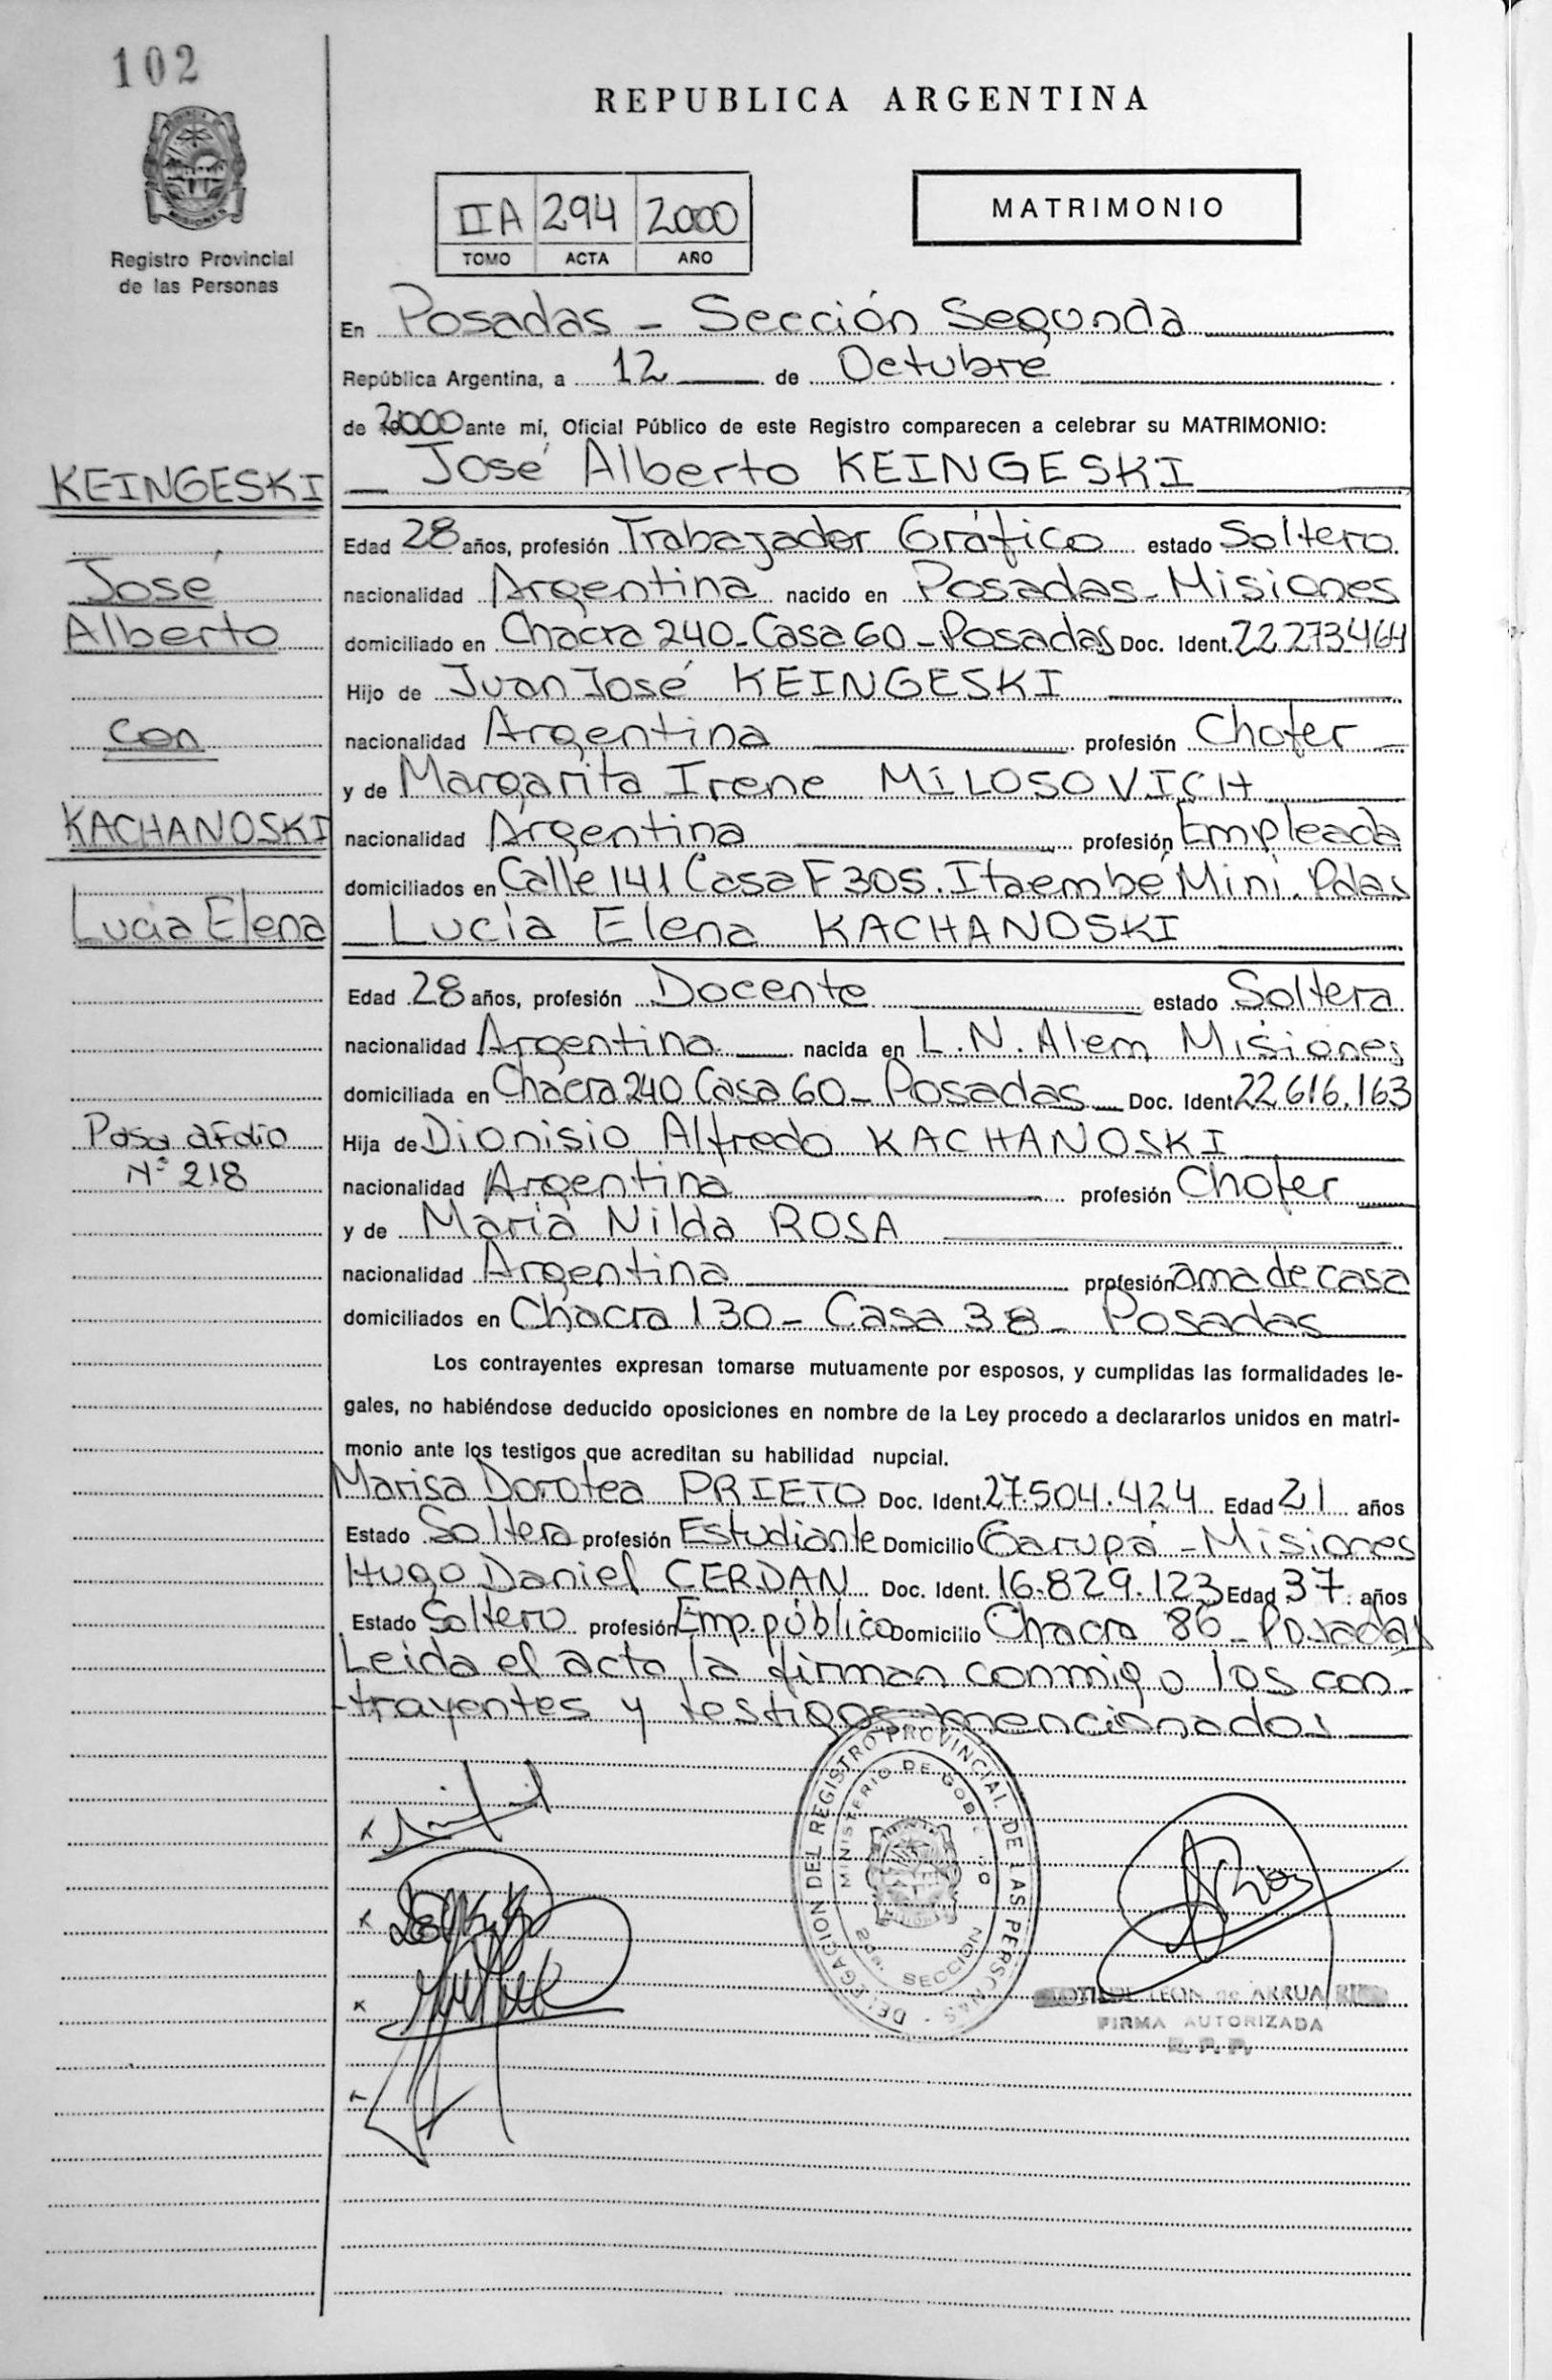 102
REPUBLICA ARGENTINA
MATRIMONIO
II A 294 2000
TOMO ACTA AÑO
Registro Provincial
de las Personas
En Posadas - Sección Segunda
República Argentina, a 12 de Octubre
de 2000 ante mí, Oficial Público de este Registro comparecen a celebrar su MATRIMONIO:
José Alberto KEINGESKI
KEINGESKI
José
Alberto
con
KACHANOSKI
Lucia Elena
Edad 28 años, profesión Trabajador Gráfico estado Soltero
nacionalidad Argentina nacido en Posadas - Misiones
domiciliado en Chacra 240 - Casa 60 - Posadas Doc. Ident. 22.273.464
Hijo de Juan José KEINGESKI
nacionalidad Argentina profesión Chofer
y de Margarita Irene MILOSOVICH
nacionalidad Argentina profesión Empleada
domiciliados en Calle 141 Casa F 305. Itaembé Mini. Pdas
Lucia Elena KACHANOSKI
Edad 28 años, profesión Docente estado Soltera
nacionalidad Argentina nacida en L.N. Alem Misiones
domiciliada en Chacra 240 Casa 60 - Posadas Doc. Ident 22.616.163
Hija de Dionisio Alfredo KACHANOSKI
nacionalidad Argentina profesión Chofer
y de Maria Nilda ROSA
nacionalidad Argentina profesión ama de casa
domiciliados en Chacra 130 - Casa 38 - Posadas
Pasa a Folio
N° 218
Los contrayentes expresan tomarse mutuamente por esposos, y cumplidas las formalidades le-
gales, no habiéndose deducido oposiciones en nombre de la Ley procedo a declararlos unidos en matri-
monio ante los testigos que acreditan su habilidad nupcial.
Marisa Dorotea PRIETO Doc. Ident. 27.504.424 Edad 21 años
Estado Soltera profesión Estudiante Domicilio Garupá - Misiones
Hugo Daniel CERDAN Doc. Ident. 16.829.123 Edad 37 años
Estado Soltero profesión Emp. público Domicilio Chacra 86 - Posadas
Leida el acta la firman conmigo los con-
trayentes y testigos mencionados
DELEGACION DEL REGISTRO PROVINCIAL DE LAS PERSONAS
MINISTERIO DE GOBIERNO
2da. SECCION
LEON de ARRUA
FIRMA AUTORIZADA
R. P. P.